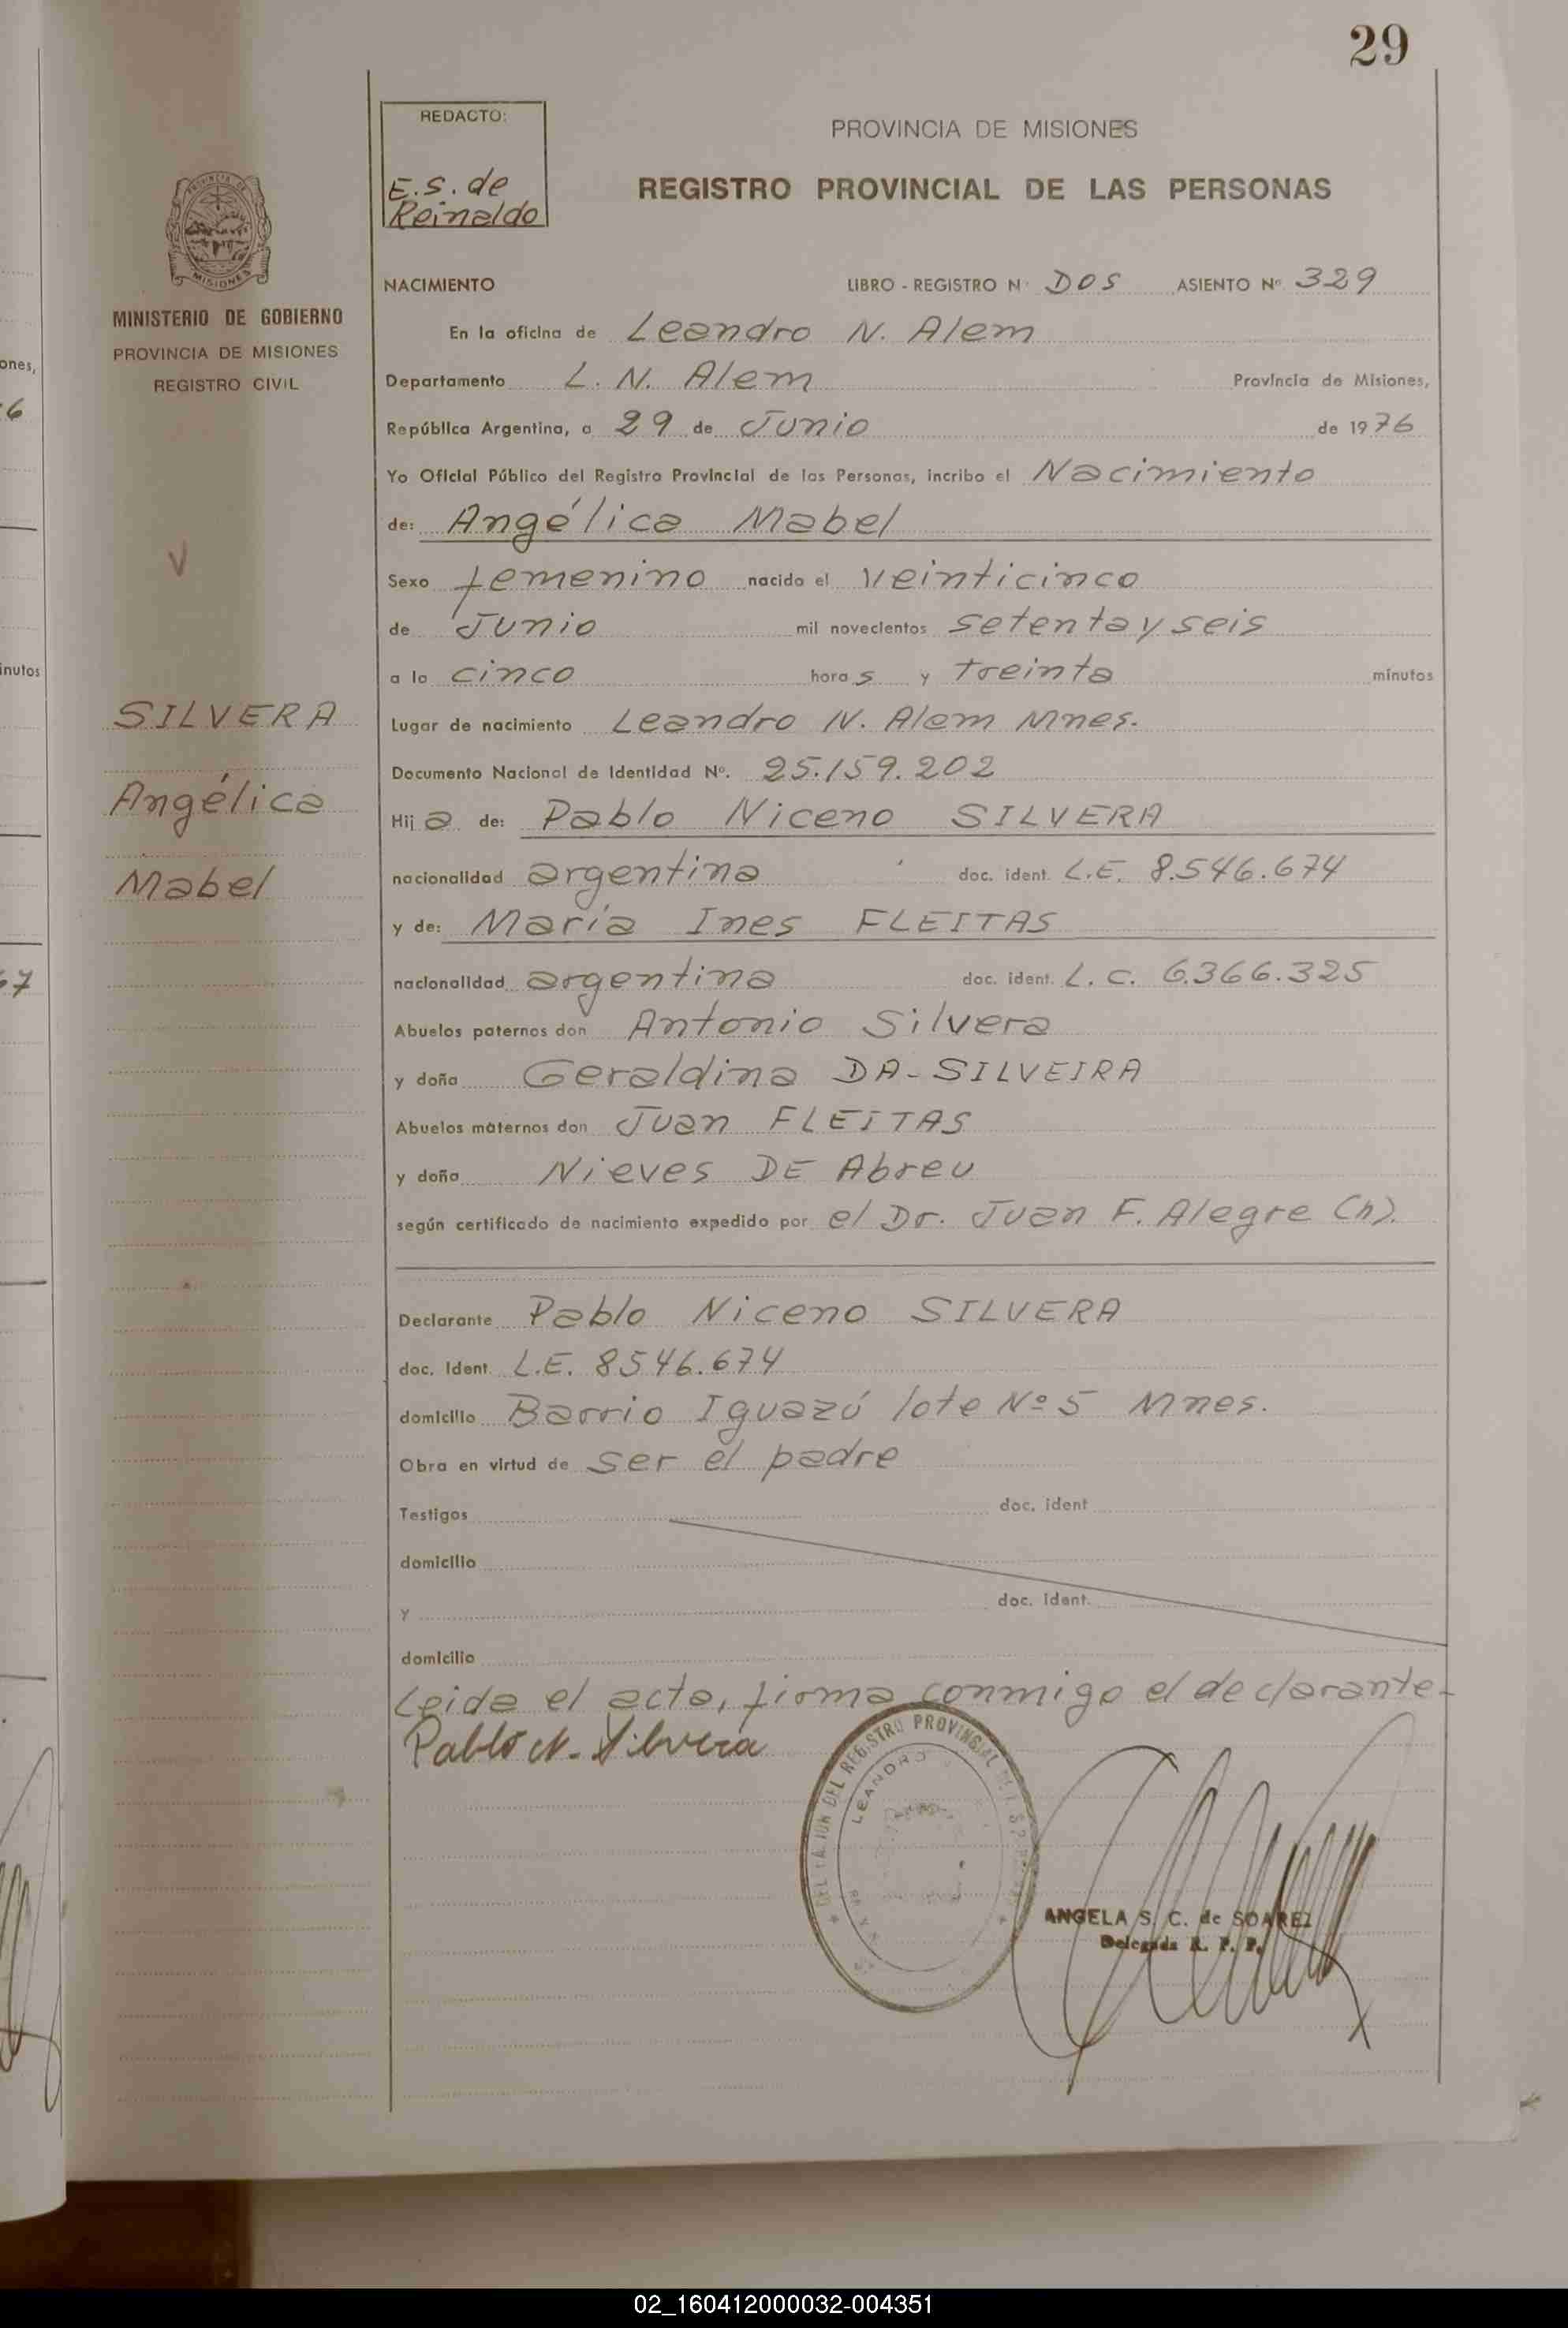 29
REDACTO:
E.S. de
Reinaldo
PROVINCIA DE MISIONES
REGISTRO PROVINCIAL DE LAS PERSONAS
MISIONES
MINISTERIO DE GOBIERNO
PROVINCIA DE MISIONES
REGISTRO CIVIL
NACIMIENTO LIBRO - REGISTRO N° DOS ASIENTO Nº 329
En la oficina de Leandro N. Alem
Departamento L. N. Alem Provincia de Misiones,
República Argentina, a 29 de Junio de 1976
Yo Oficial Público del Registro Provincial de las Personas, incribo el Nacimiento
de: Angélica Mabel
Sexo femenino nacido el veinticinco
de Junio mil novecientos setenta y seis
a la cinco horas y treinta minutos
SILVERA
Angélica
Mabel
Lugar de nacimiento Leandro N. Alem Mnes.
Documento Nacional de Identidad Nº. 25.159.202
Hija de: Pablo Niceno SILVERA
nacionalidad argentina doc. ident. L.E. 8.546.674
y de: María Ines FLEITAS
nacionalidad argentina doc. ident. L.C. 6.366.325
Abuelos paternos don Antonio Silvera
y doña Geraldina DA-SILVEIRA
Abuelos maternos don Juan FLEITAS
y doña Nieves DE Abreu
según certificado de nacimiento expedido por el Dr. Juan F. Alegre (h).
Declarante Pablo Niceno SILVERA
doc. Ident. L.E. 8546.674
domicilio Barrio Iguazú lote Nº 5 Mnes.
Obra en virtud de ser el padre
Testigos doc. ident
domicilio
y doc. ident.
domicilio
Leida el acta, firma conmigo el declarante-
Pablo N. Silvera
DEL REGISTRO PROVINCIAL
LEANDRO
ANGELA S. C. de SOAREZ
Delegada R. P. P.
ones,
6
inutos
67
02_160412000032-004351